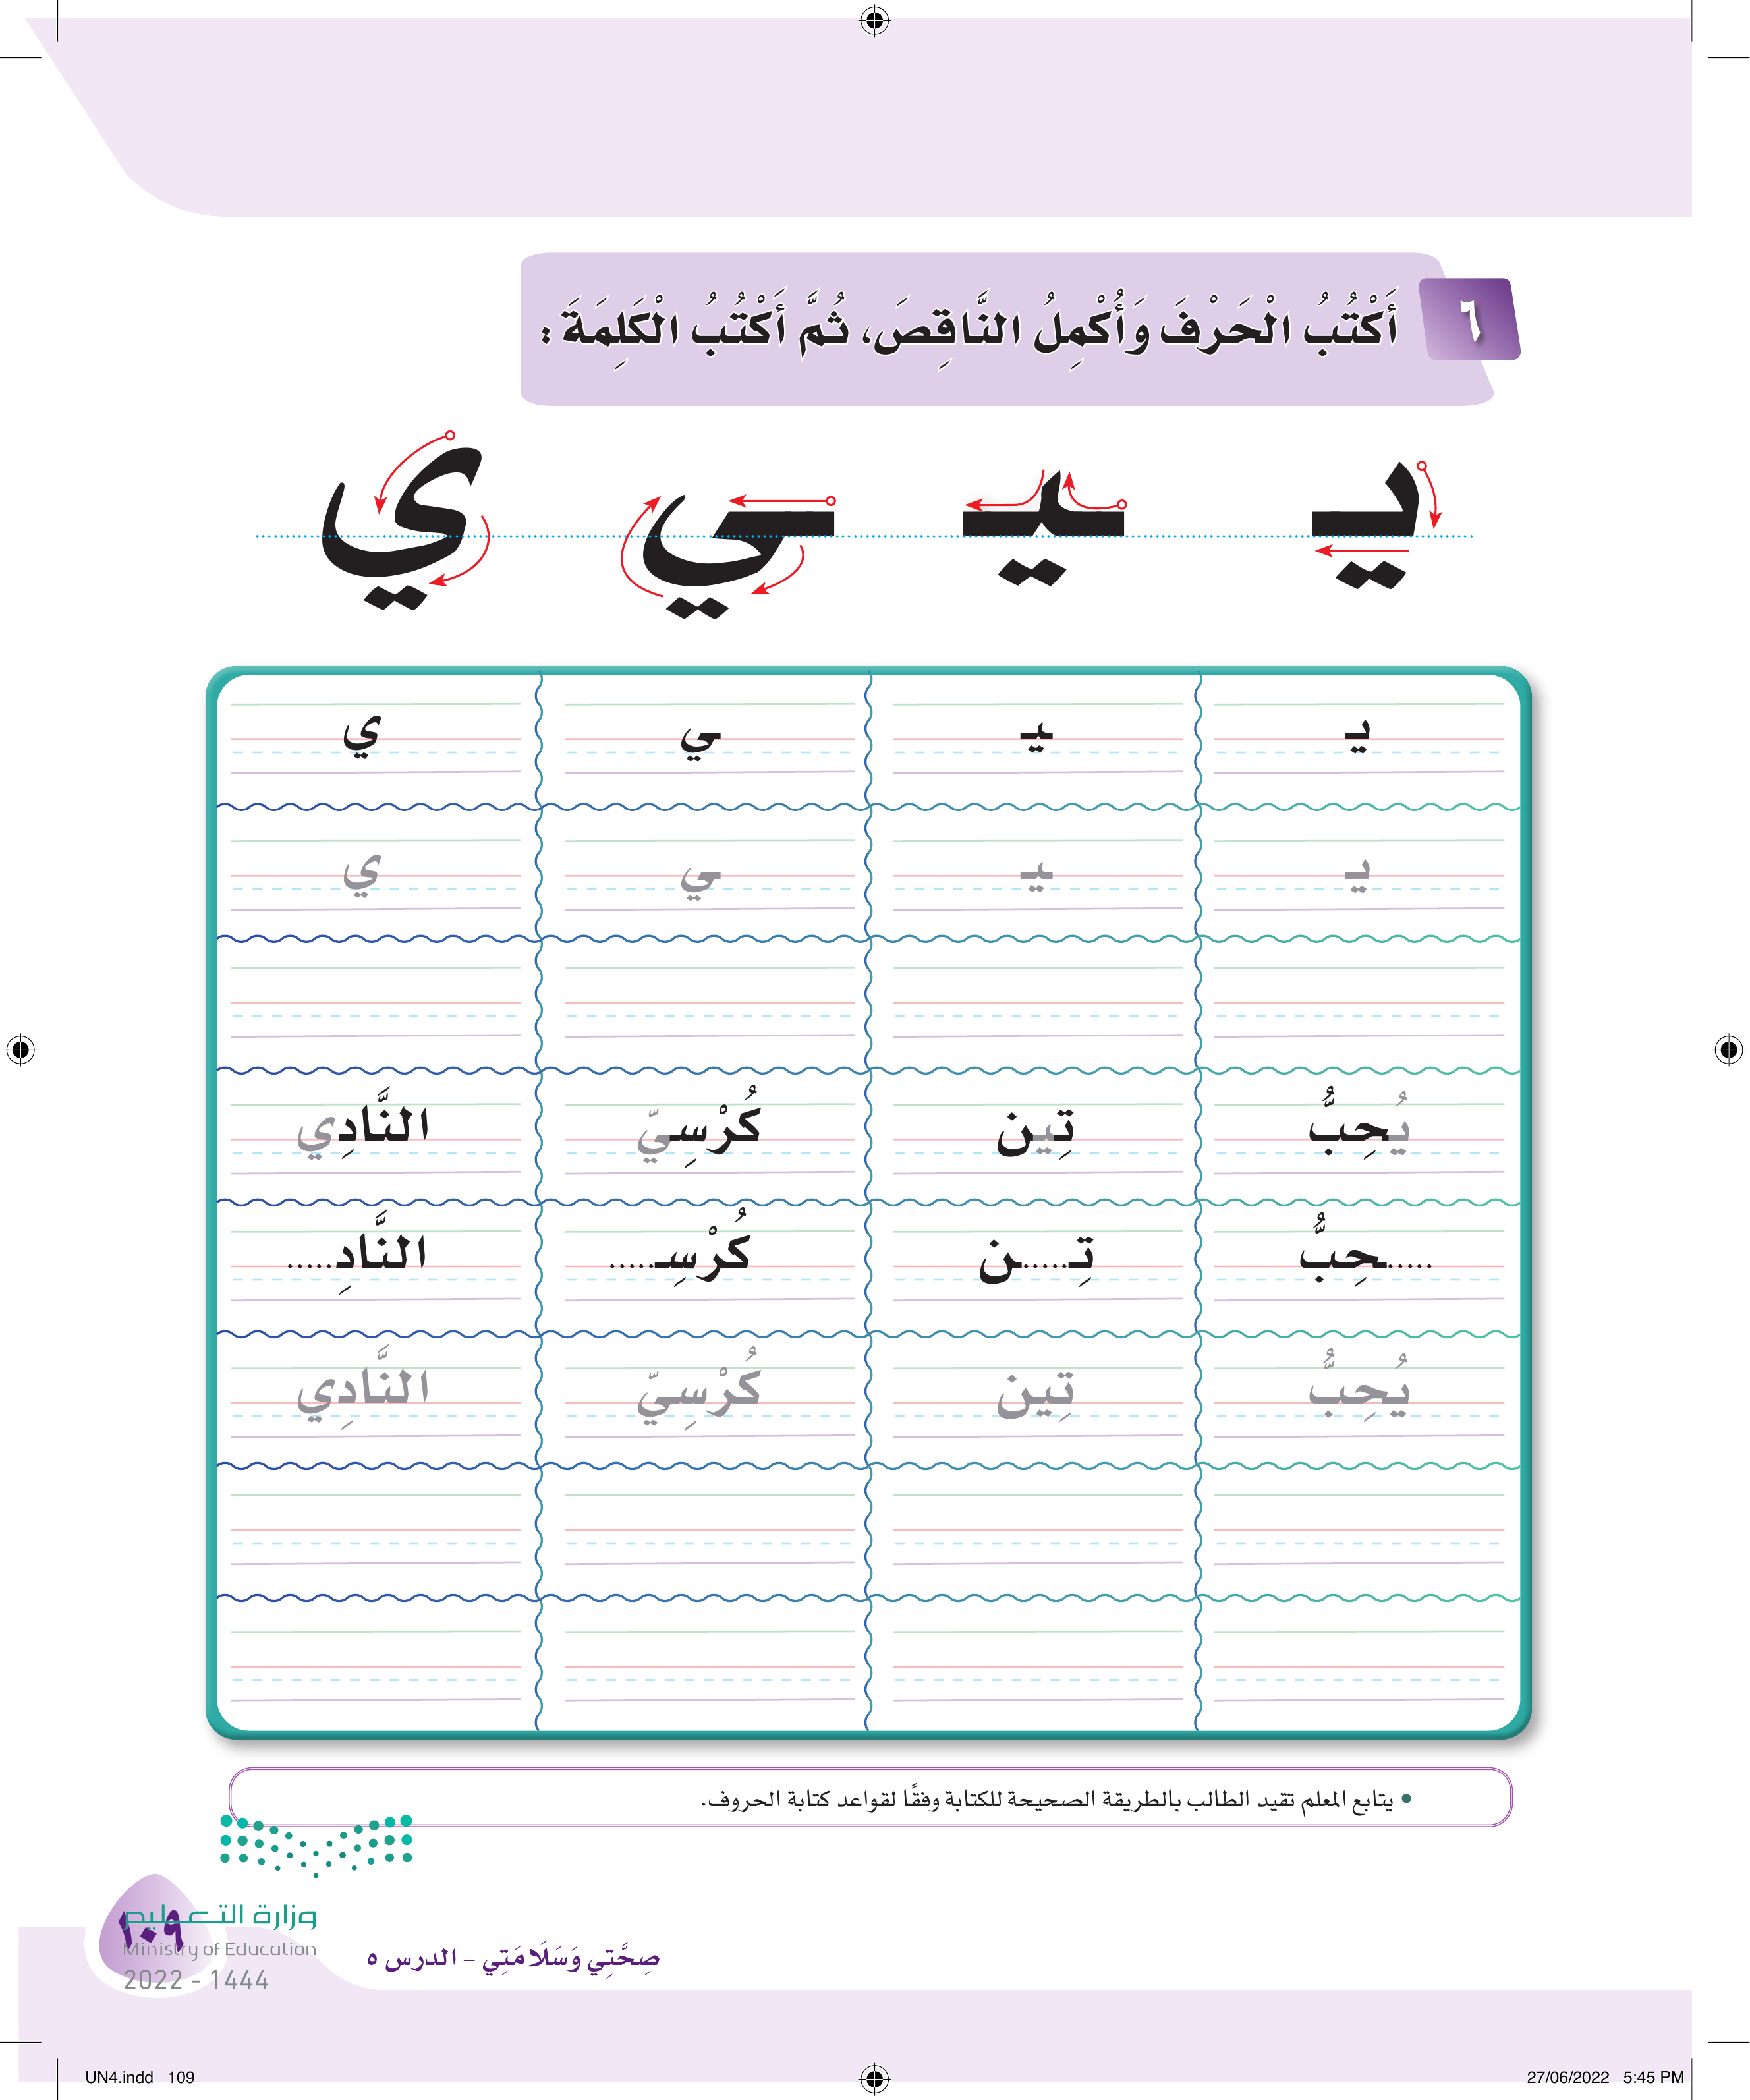 ٦
أَكْتُبُ الْحَرْفَ وَأُكْمِلُ النَّاقِصَ، ثُمَّ أَكْتُبُ الْكَلِمَةَ :
يـ ـيـ ـي ي
يـ ـيـ ـي ي
يـ ـيـ ـي ي
يُحِبُّ تِين كُرْسِيّ النَّادِي
.....ـحِبُّ تِـ.....ـن كُرْسِـ..... النَّادِ.....
يُحِبُّ تِين كُرْسِيّ النَّادِي
• يتابع المعلم تقيد الطالب بالطريقة الصحيحة للكتابة وفقًا لقواعد كتابة الحروف.
١٠٩
وزارة التعليم
Ministry of Education
2022 - 1444
صِحَّتِي وَسَلَامَتِي – الدرس ٥
UN4.indd 109
27/06/2022 5:45 PM